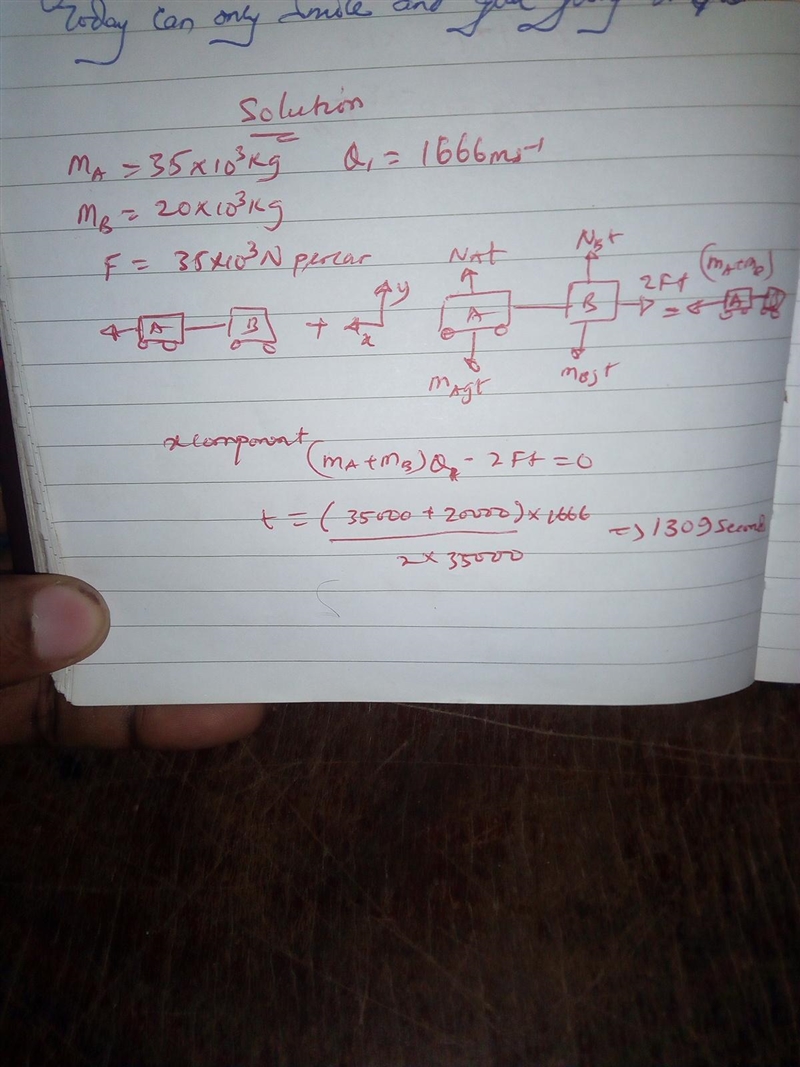 Today can only smile and
Solution
mA = 35×10³Kg Q₁ = 1666ms⁻¹
mB = 20×10³Kg
F = 35×10³N per car
A B + x y
NAt A mAgt
NBt B mBgt
2Ft = (mA+mB) A
x component (mA+mB)Qx - 2Ft = 0
t = (35000 + 20000) × 1666 / 2 × 35000 => 1309 second